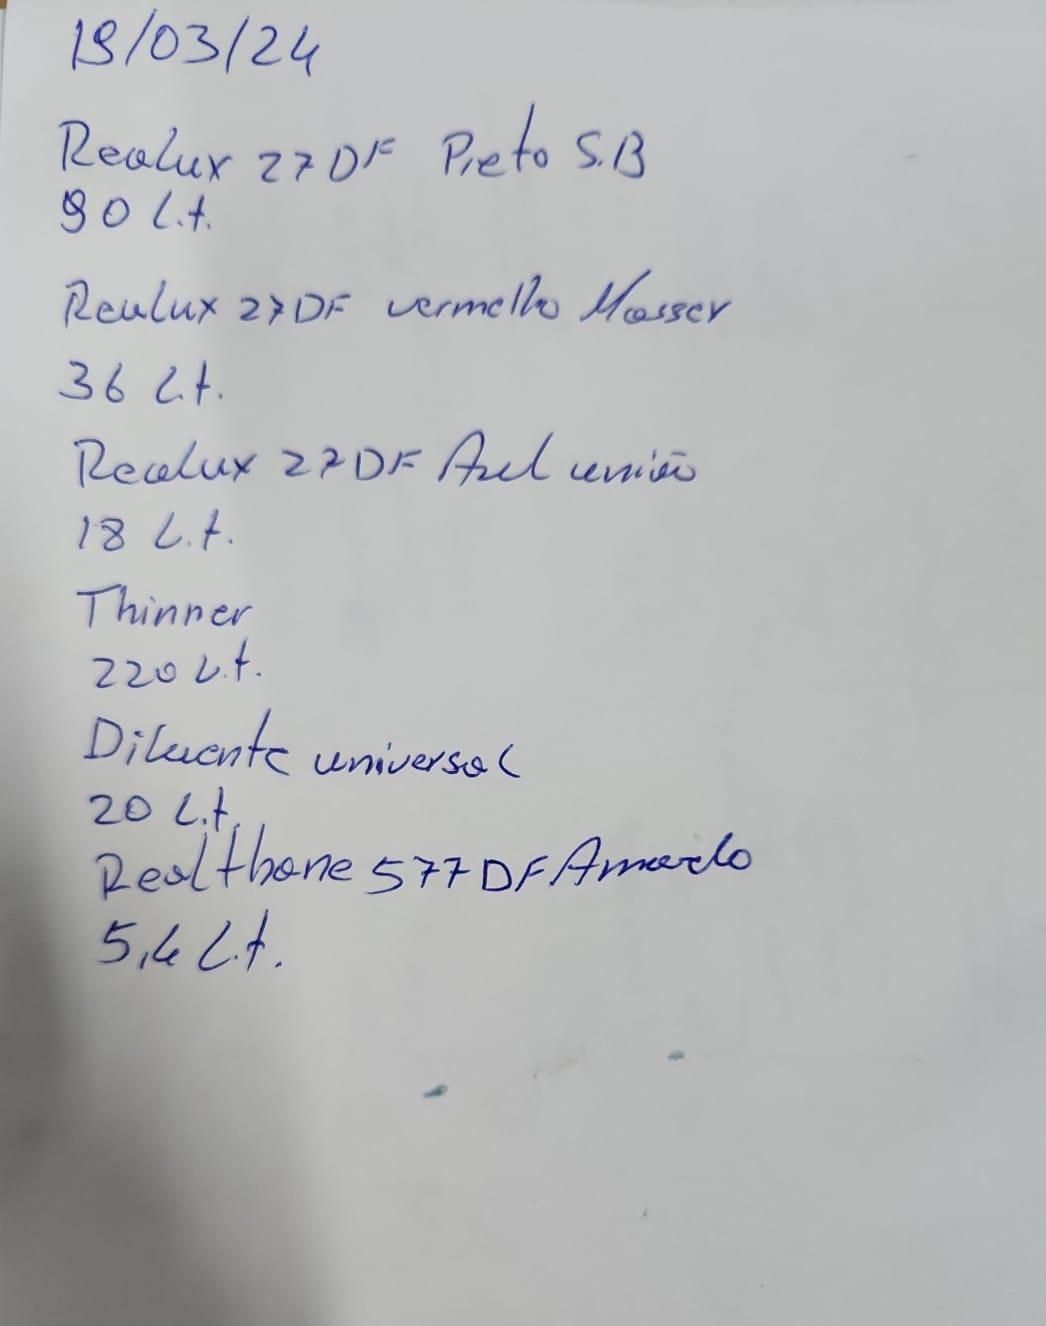 19/03/24
Realux 27DF Preto S.B
90 L.t.
Realux 27DF vermelho Masser
36 L.t.
Realux 27DF Azul união
18 L.t.
Thinner
220 L.t.
Diluente universal
20 L.t.
Realthane 577DF Amarelo
5,4 L.t.